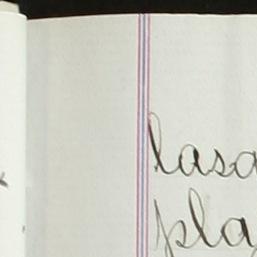 lasa
pla